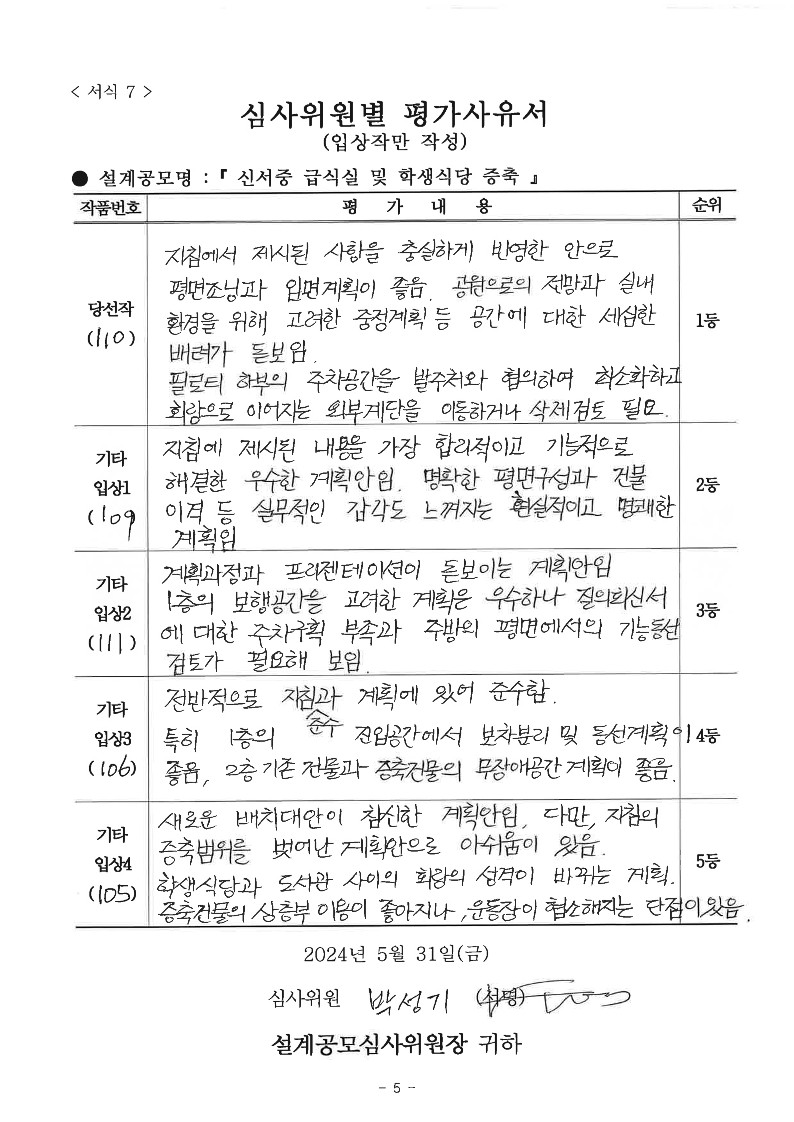 < 서식 7 >
심사위원별 평가사유서
(입상작만 작성)
● 설계공모명 : 『 신서중 급식실 및 학생식당 증축 』
작품번호 평 가 내 용 순위
당선작
(110)
지침에서 제시된 사항을 충실하게 반영한 안으로
평면조닝과 입면계획이 좋음. 공원으로의 전망과 실내
환경을 위해 고려한 중정계획 등 공간에 대한 세심한
배려가 돋보임.
필로티 하부의 주차공간을 발주처와 협의하여 최소화하고
회랑으로 이어지는 외부계단을 이동하거나 삭제검토 필요.
1등
기타
입상1
(109
지침에 제시된 내용을 가장 합리적이고 기능적으로
해결한 우수한 계획안임. 명확한 평면구성과 건물
이격 등 실무적인 감각도 느껴지는 현실적이고 명쾌한
계획임
2등
기타
입상2
(111)
계획과정과 프리젠테이션이 돋보이는 계획안임
1층의 보행공간을 고려한 계획은 우수하나 질의회신서
에 대한 주차구획 부족과 주방의 평면에서의 기능동선
검토가 필요해 보임.
3등
기타
입상3
(106)
전반적으로 지침과 계획에 있어 준수함.
준수
특히 1층의 진입공간에서 보차분리 및 동선계획이
좋음, 2층 기존 건물과 증축건물의 무장애공간 계획이 좋음.
4등
기타
입상4
(105)
새로운 배치대안이 참신한 계획안임, 다만, 지침의
증축범위를 벗어난 계획안으로 아쉬움이 있음.
학생식당과 도서관 사이의 회랑의 성격이 바뀌는 계획.
증축건물의 상층부 이용이 좋아지나, 운동장이 협소해지는 단점이 있음.
5등
2024년 5월 31일(금)
심사위원 박성기 (서명)
설계공모심사위원장 귀하
- 5 -